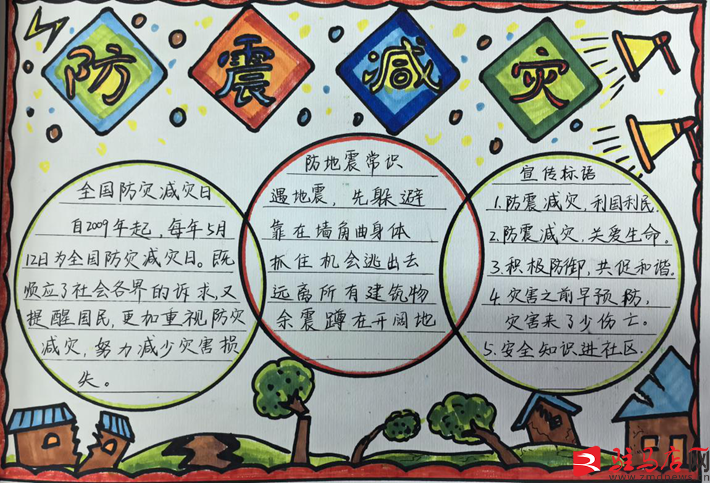 防震减灾
全国防灾减灾日
自2009年起，每年5月
12日为全国防灾减灾日。既
顺应了社会各界的诉求，又
提醒国民，更加重视防灾
减灾，努力减少灾害损
失。
防地震常识
遇地震，先躲避
靠在墙角曲身体
抓住机会逃出去
远离所有建筑物
余震蹲在开阔地
宣传标语
1.防震减灾，利国利民。
2.防震减灾，关爱生命。
3.积极防御，共促和谐。
4.灾害之前早预防，
灾害来了少伤亡。
5.安全知识进社区.
驻马店网